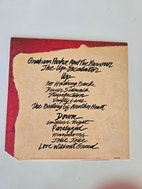 Graham Parker And The Rumour
The Up Escalator
Up
No Holding Back
Devil's Sidewalk
Stupefaction
Empty Lives
The Beating Of Another Heart
Down
Endless Night
Paralyzed
Manoeuvres
Jolie Jolie
Love Without Greed